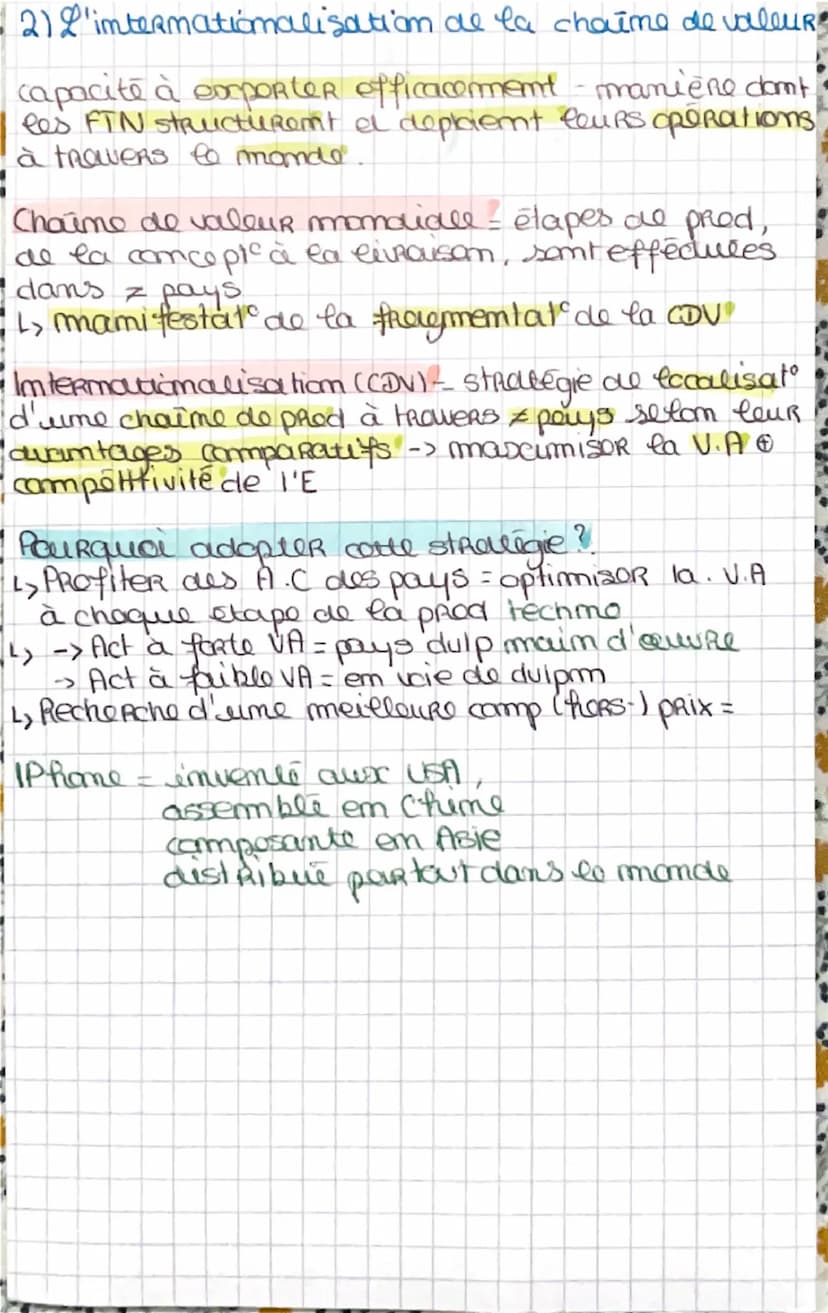 2) L'internationalisation de la chaîne de valeur
capacité à exporter efficacement - manière dont
les FTN structurent et deploient leurs opérations
à travers le monde.
Chaîne de valeur mondiale = étapes de prod,
de la concept° à la livraison, sont effectuées
dans ≠ pays
↳ manifestat° de la fragmentat° de la CDV
Internationalisation (CDV) = stratégie de localisat°
d'une chaîne de prod à travers ≠ pays selon leur
avantages comparatifs -> maximiser la V.A ⊕
compétitivité de l'E
Pourquoi adopter cette stratégie?
↳ Profiter des A.C des pays = optimiser la V.A
à chaque étape de la prod techno
↳ -> Act à forte VA = pays dvlp main d'œuvre
-> Act à faible VA = en voie de dvlpm
↳ Recherche d'une meilleure comp (hors-) prix =
IPhone = inventé aux USA,
assemblé en Chine
composante en Asie
distribué partout dans le monde